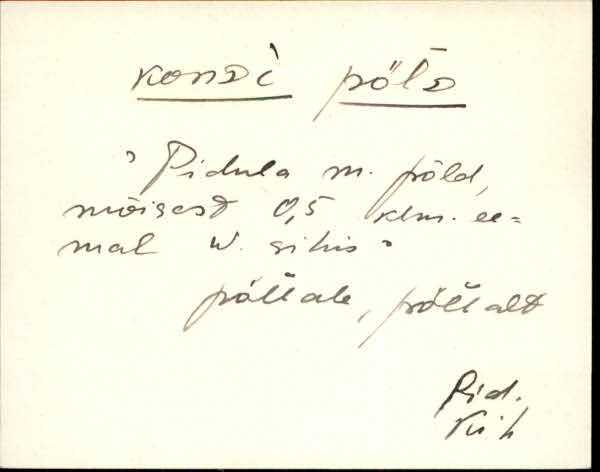 konᴅì pö̀lᴅ
"Pidula m. põld,
mõisast 0,5 klm. ee-
mal W. sihis"
põllale, põllalt
Pid.
Kih